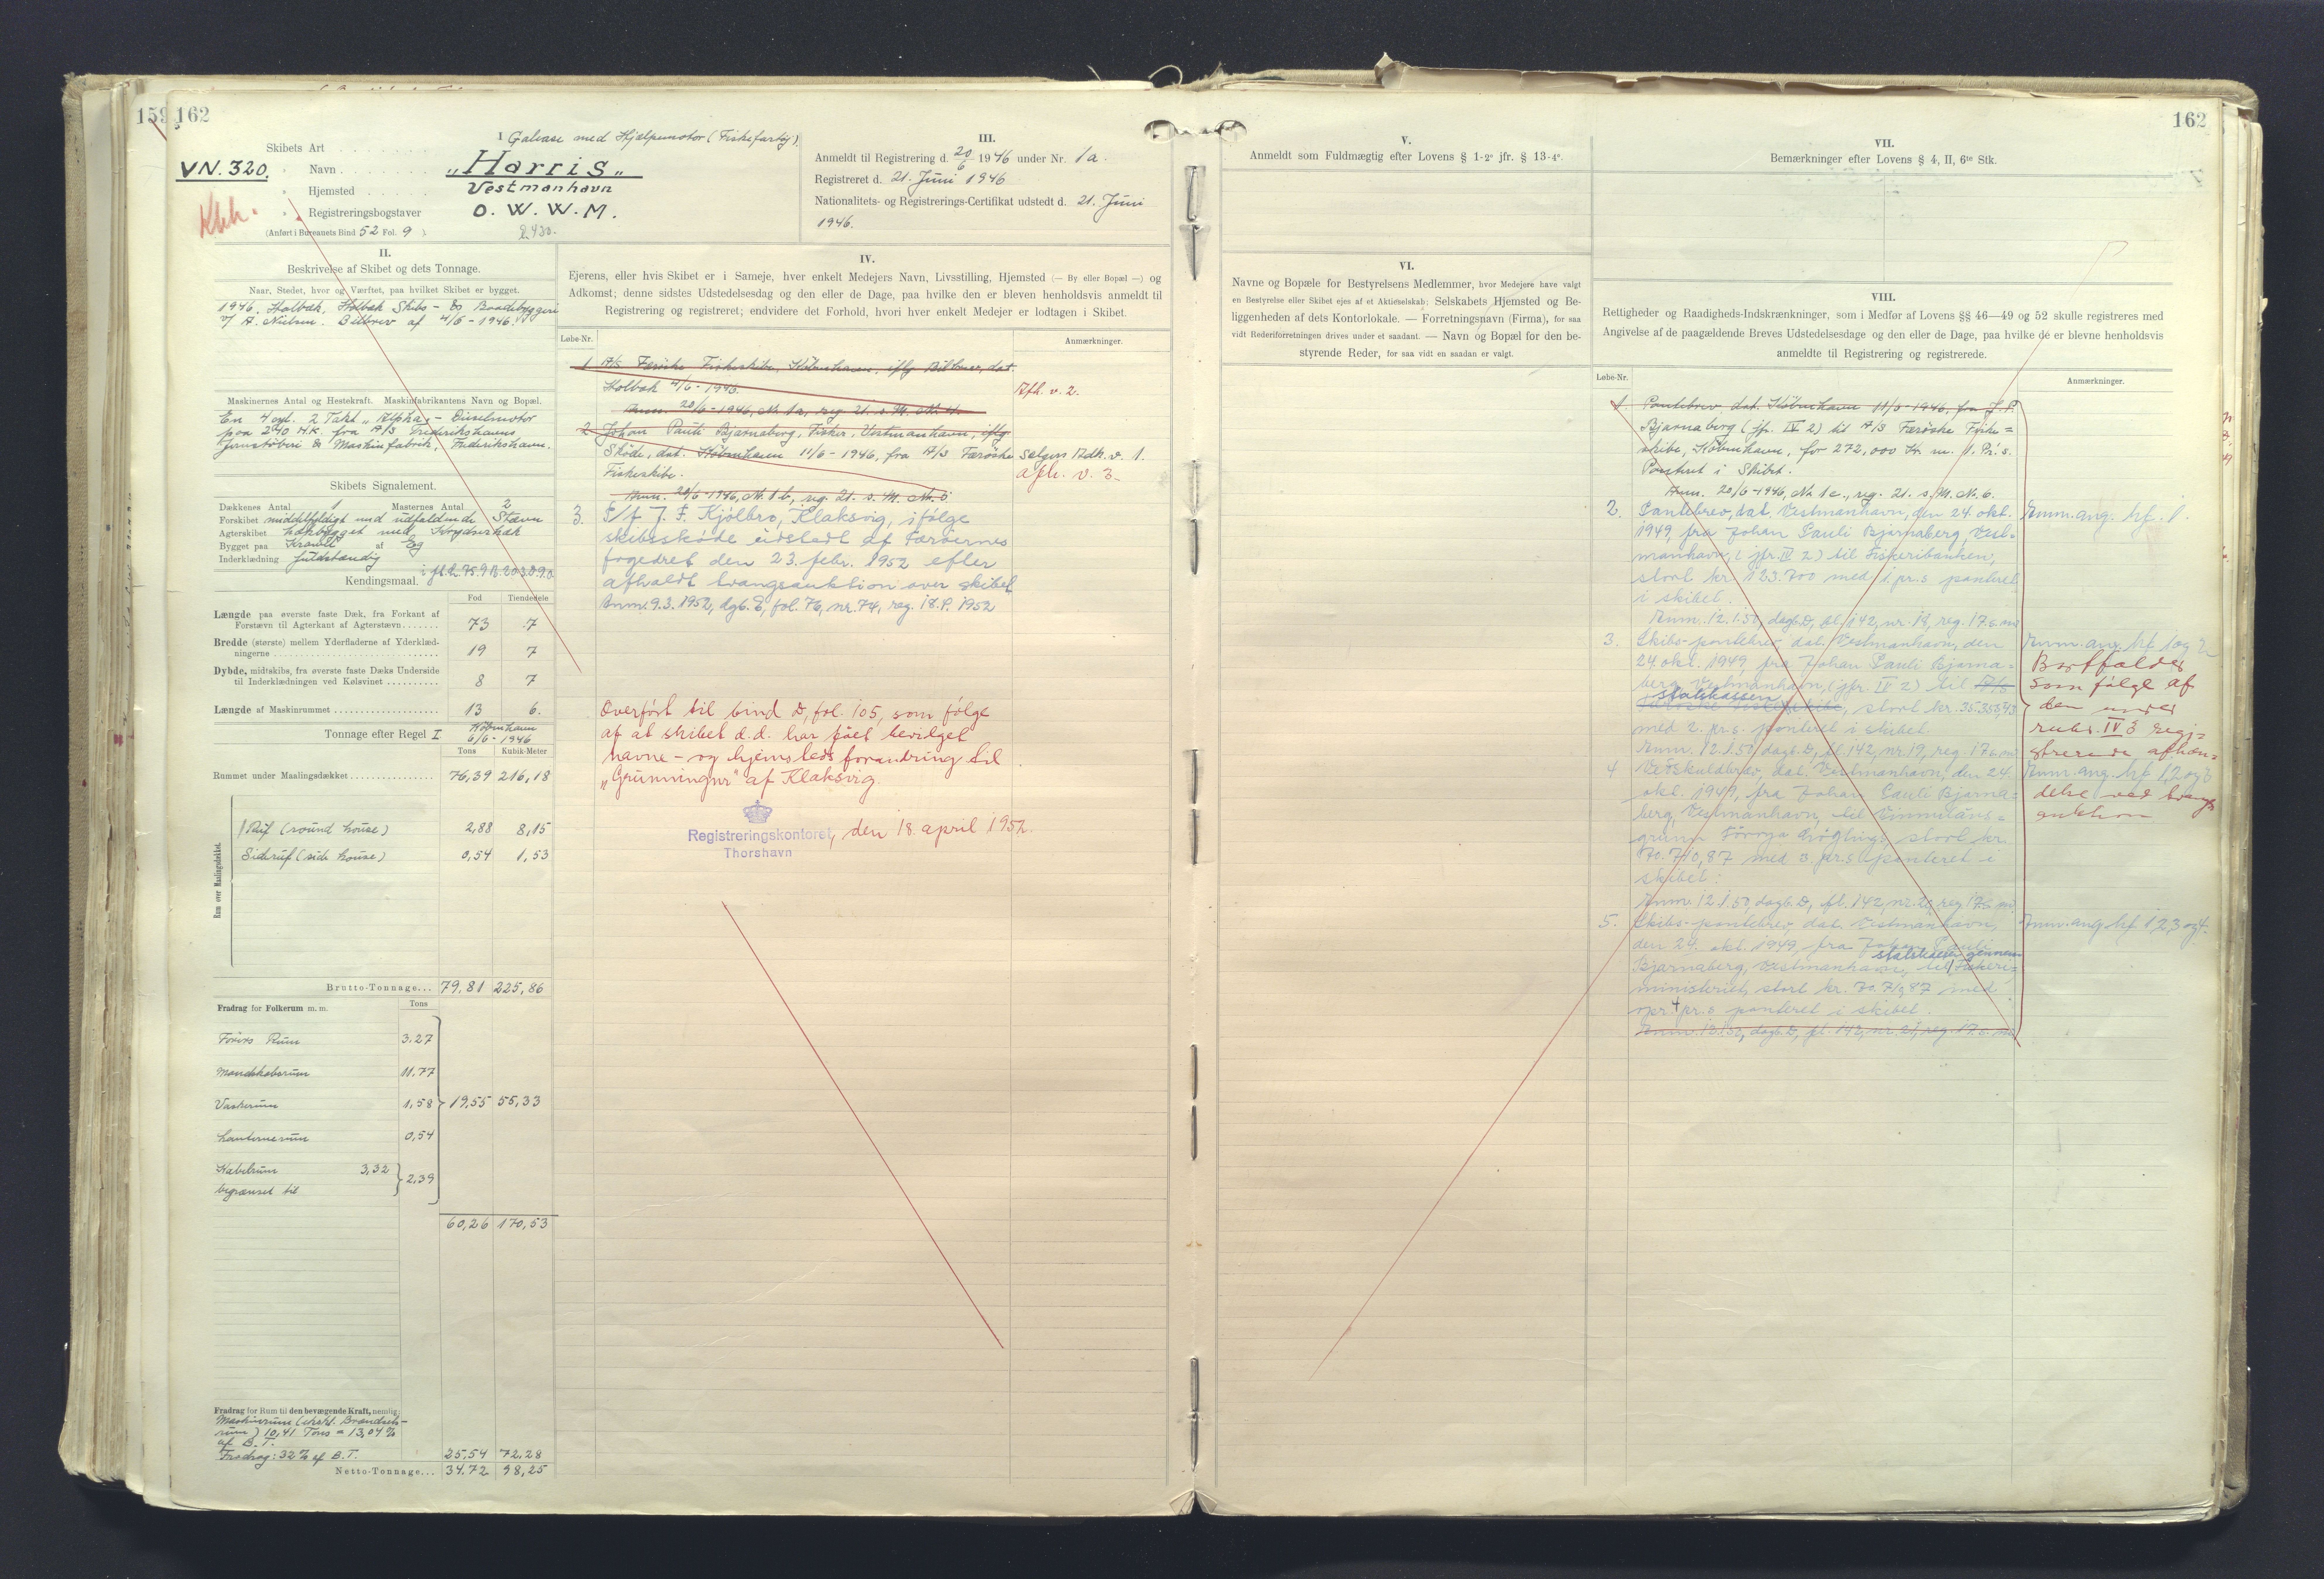 159 162
I
Skibets Art Galease med Hjælpemotor (Fiskefartøj)
VN. 320.
Navn „Harris„
Hjemsted Vestmanhavn
Registreringsbogstaver O. W. W. M.
Kbh.
(Anført i Bureauets Bind 52 Fol. 9)
II.
Beskrivelse af Skibet og dets Tonnage.
Naar, Stedet, hvor og Værftet, paa hvilket Skibet er bygget.
1946. Holbæk, Holbæk Skibs- & Baadebyggeri
v/ A. Nielsen. Bilbrev af 4/6-1946.
Maskinernes Antal og Hestekraft. Maskinfabrikantens Navn og Bopæl.
En 4 cyl. 2 Takt „Alpha - Dieselmotor
paa 240 H.K. fra A/S Frederikshavns
Jernstøberi & Maskinfabrik, Frederikshavn.
Skibets Signalement.
Dækkenes Antal 1 Masternes Antal 2
Forskibet middelfyldigt med udfaldende Stævn
Agterskibet hækbygget med Krydserhæk
Bygget paa Kravel af Eg
Inderklædning fuldstændig
Kendingsmaal.
Fod Tiendedele
Længde paa øverste faste Dæk, fra Forkant af
Forstævn til Agterkant af Agterstævn 73 7
Bredde (største) mellem Yderfladerne af Yderklæd-
ningerne 19 7
Dybde, midtskibs, fra øverste faste Dæks Underside
til Inderklædningen ved Kølsvinet 8 7
Længde af Maskinrummet 13 6.
Tonnage efter Regel I København
6/6-1946
Tons Kubik-Meter
Rummet under Maalingsdækket 76,39 216,18
Rum over Maalingsdækket.
1 Ruf (round house) 2,88 8,15
Sideruf (side house) 0,54 1,53
Brutto-Tonnage... 79,81 225,86
Fradrag for Folkerum m. m. Tons
Førers Rum 3.27
Mandskabsrum 11.77
Vaskerum 1,58 19,55 55,33
Lanternerum 0,54
Kabelrum 3,32
begrænset til 2,39
60,26 170,53
Fradrag for Rum til den bevægende Kraft, nemlig:
Maskinrum (inkl. Brændsels-
rum) 10,41 Tons = 13,04%
af B.T.
Fradrag: 32% af B.T. 25,54 72,28
Netto-Tonnage... 34.72 98,25
III.
Anmeldt til Registrering d. 20/6 1946 under Nr. 1a.
Registreret d. 21. Juni 1946
Nationalitets- og Registrerings-Certifikat udstedt d. 21. Juni
1946.
IV.
Ejerens, eller hvis Skibet er i Sameje, hver enkelt Medejers Navn, Livsstilling, Hjemsted (— By eller Bopæl —) og
Adkomst; denne sidstes Udstedelsesdag og den eller de Dage, paa hvilke den er bleven henholdsvis anmeldt til
Registrering og registreret; endvidere det Forhold, hvori hver enkelt Medejer er lodtagen i Skibet.
Løbe-Nr. Anmærkninger.
1 A/S Færøske Fiskeskibe, København, iflg Bilbrev, dat.
Holbæk 4/6-1946. Afh. v. 2.
Anm. 20/6-1946, Nr. 1a, reg 21. s. M. Nr. 4.
2 Johan Pauli Bjarnaberg, Fisker, Vestmanhavn, iflg
Skøde, dat. København 11/6-1946, fra A/S Færøske Sælgers Adk. v. 1.
Fiskeskibe. afh. v. 3.
Anm. 20/6-1946, Nr. 1b, reg. 21. s. M. Nr. 5
3. P/f J. F. Kjølbro, Klaksvig, ifølge
skibsskøde udstedt af Færøernes
fogedret den 23. febr. 1952 efter
afholdt tvangsauktion over skibet
Anm. 9.3. 1952, dgb. E, fol. 76, nr. 74, reg. 18. s. 1952
Overført til bind D, fol. 105, som følge
af at skibet d.d. har fået bevilget
navne- og hjemstedsforandring til
„Grunningur" af Klaksvig.
Registreringskontoret, den 18. april 1952.
Thorshavn
162
V.
Anmeldt som Fuldmægtig efter Lovens § 1-2° jfr. § 13-4°.
VI.
Navne og Bopæle for Bestyrelsens Medlemmer, hvor Medejere have valgt
en Bestyrelse eller Skibet ejes af et Aktieselskab; Selskabets Hjemsted og Be-
liggenheden af dets Kontorlokale. — Forretningsnavn (Firma), for saa
vidt Rederiforretningen drives under et saadant. — Navn og Bopæl for den be-
styrende Reder, for saa vidt en saadan er valgt.
VII.
Bemærkninger efter Lovens § 4, II, 6te Stk.
VIII.
Rettigheder og Raadigheds-Indskrænkninger, som i Medfør af Lovens §§ 46—49 og 52 skulle registreres med
Angivelse af de paagældende Breves Udstedelsesdage og den eller de Dage, paa hvilke de er blevne henholdsvis
anmeldte til Registrering og registrerede.
Løbe-Nr. Anmærkninger.
1. Pantebrev dat. København 11/6-1946, fra J. P.
Bjarnaberg (jfr. IV 2) til A/S Færøske Fiske=
skibe, København, for 272,000 Kr. m. 1. Pr. s.
Panteret i Skibet.
Anm. 20/6-1946, Nr. 1c., reg. 21. s. M. N. 6.
2. Pantebrev, dat. Vestmanhavn, den 24. okt. Anm. ang. hf. 1.
1949, fra Johan Pauli Bjarnaberg, Vest-
manhavn, (jfr. IV 2) til Fiskeribanken,
stort kr. 123.700 med 1. pr. s. panteret
i skibet.
Anm. 12.1.50, dagb. D, fl. 142, nr. 18, reg. 17. s. md
3. Skibs-pantebrev, dat. Vestmanhavn, den Anm. ang. hf. 1 og 2
24 okt. 1949 fra Johan Pauli Bjarna-
berg, Vestmanhavn, (jfr. IV 2) til A/S
statskassen
Færøske Fiskeskibe, stort kr. 35.358,43
med 2. pr. s. panteret i skibet.
Anm. 12.1.50, dagb. D, fl. 142, nr. 19, reg. 17. s. md
Bortfalder
som følge af
den under
rubr. IV 3 regi-
strerede afhæn-
delse ved tvangs
auktion
4 Veðskuldbrev, dat. Vestmanhavn, den 24. Anm. ang. hf. 1, 2 og 3
okt. 1949, fra Johan Pauli Bjarna=
berg, Vestmanhavn, til
stort kr.
70.710,87 med 3. pr. s. panteret i
skibet.
Anm. 12.1.50, dagb. D, fl. 142, nr. 20, reg. 17. s. md.
5. Skibs-pantebrev, dat. Vestmanhavn, Anm. ang. hf. 1, 2, 3 og 4.
den 24. okt. 1949, fra Johan Pauli
statskassen gennem
Bjarnaberg, Vestmanhavn, til Fiskeri-
ministeriet, stort kr. med
opr. 4 pr. s. panteret i skibet.
Anm. 12.1.50, dagb. D, fl. 142, nr. 21, reg. 17. s. md